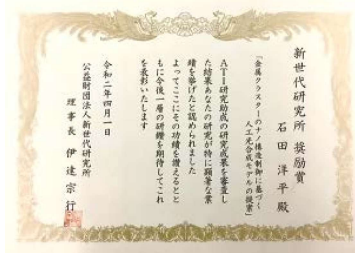 新世代研究所 奨励賞
石田洋平 殿
「金属クラスターのナノ構造制御に基づく
人工光合成モデルの提案」
ATI研究助成の研究成果を審査し
た結果あなたの研究が特に顕著な業
績を挙げたと認められました
よってここにその功績を讃えるとと
もに今後一層の研鑽を期待してこれ
を表彰いたします
令和二年四月一日
公益財団法人新世代研究所
理事長 伊達宗行